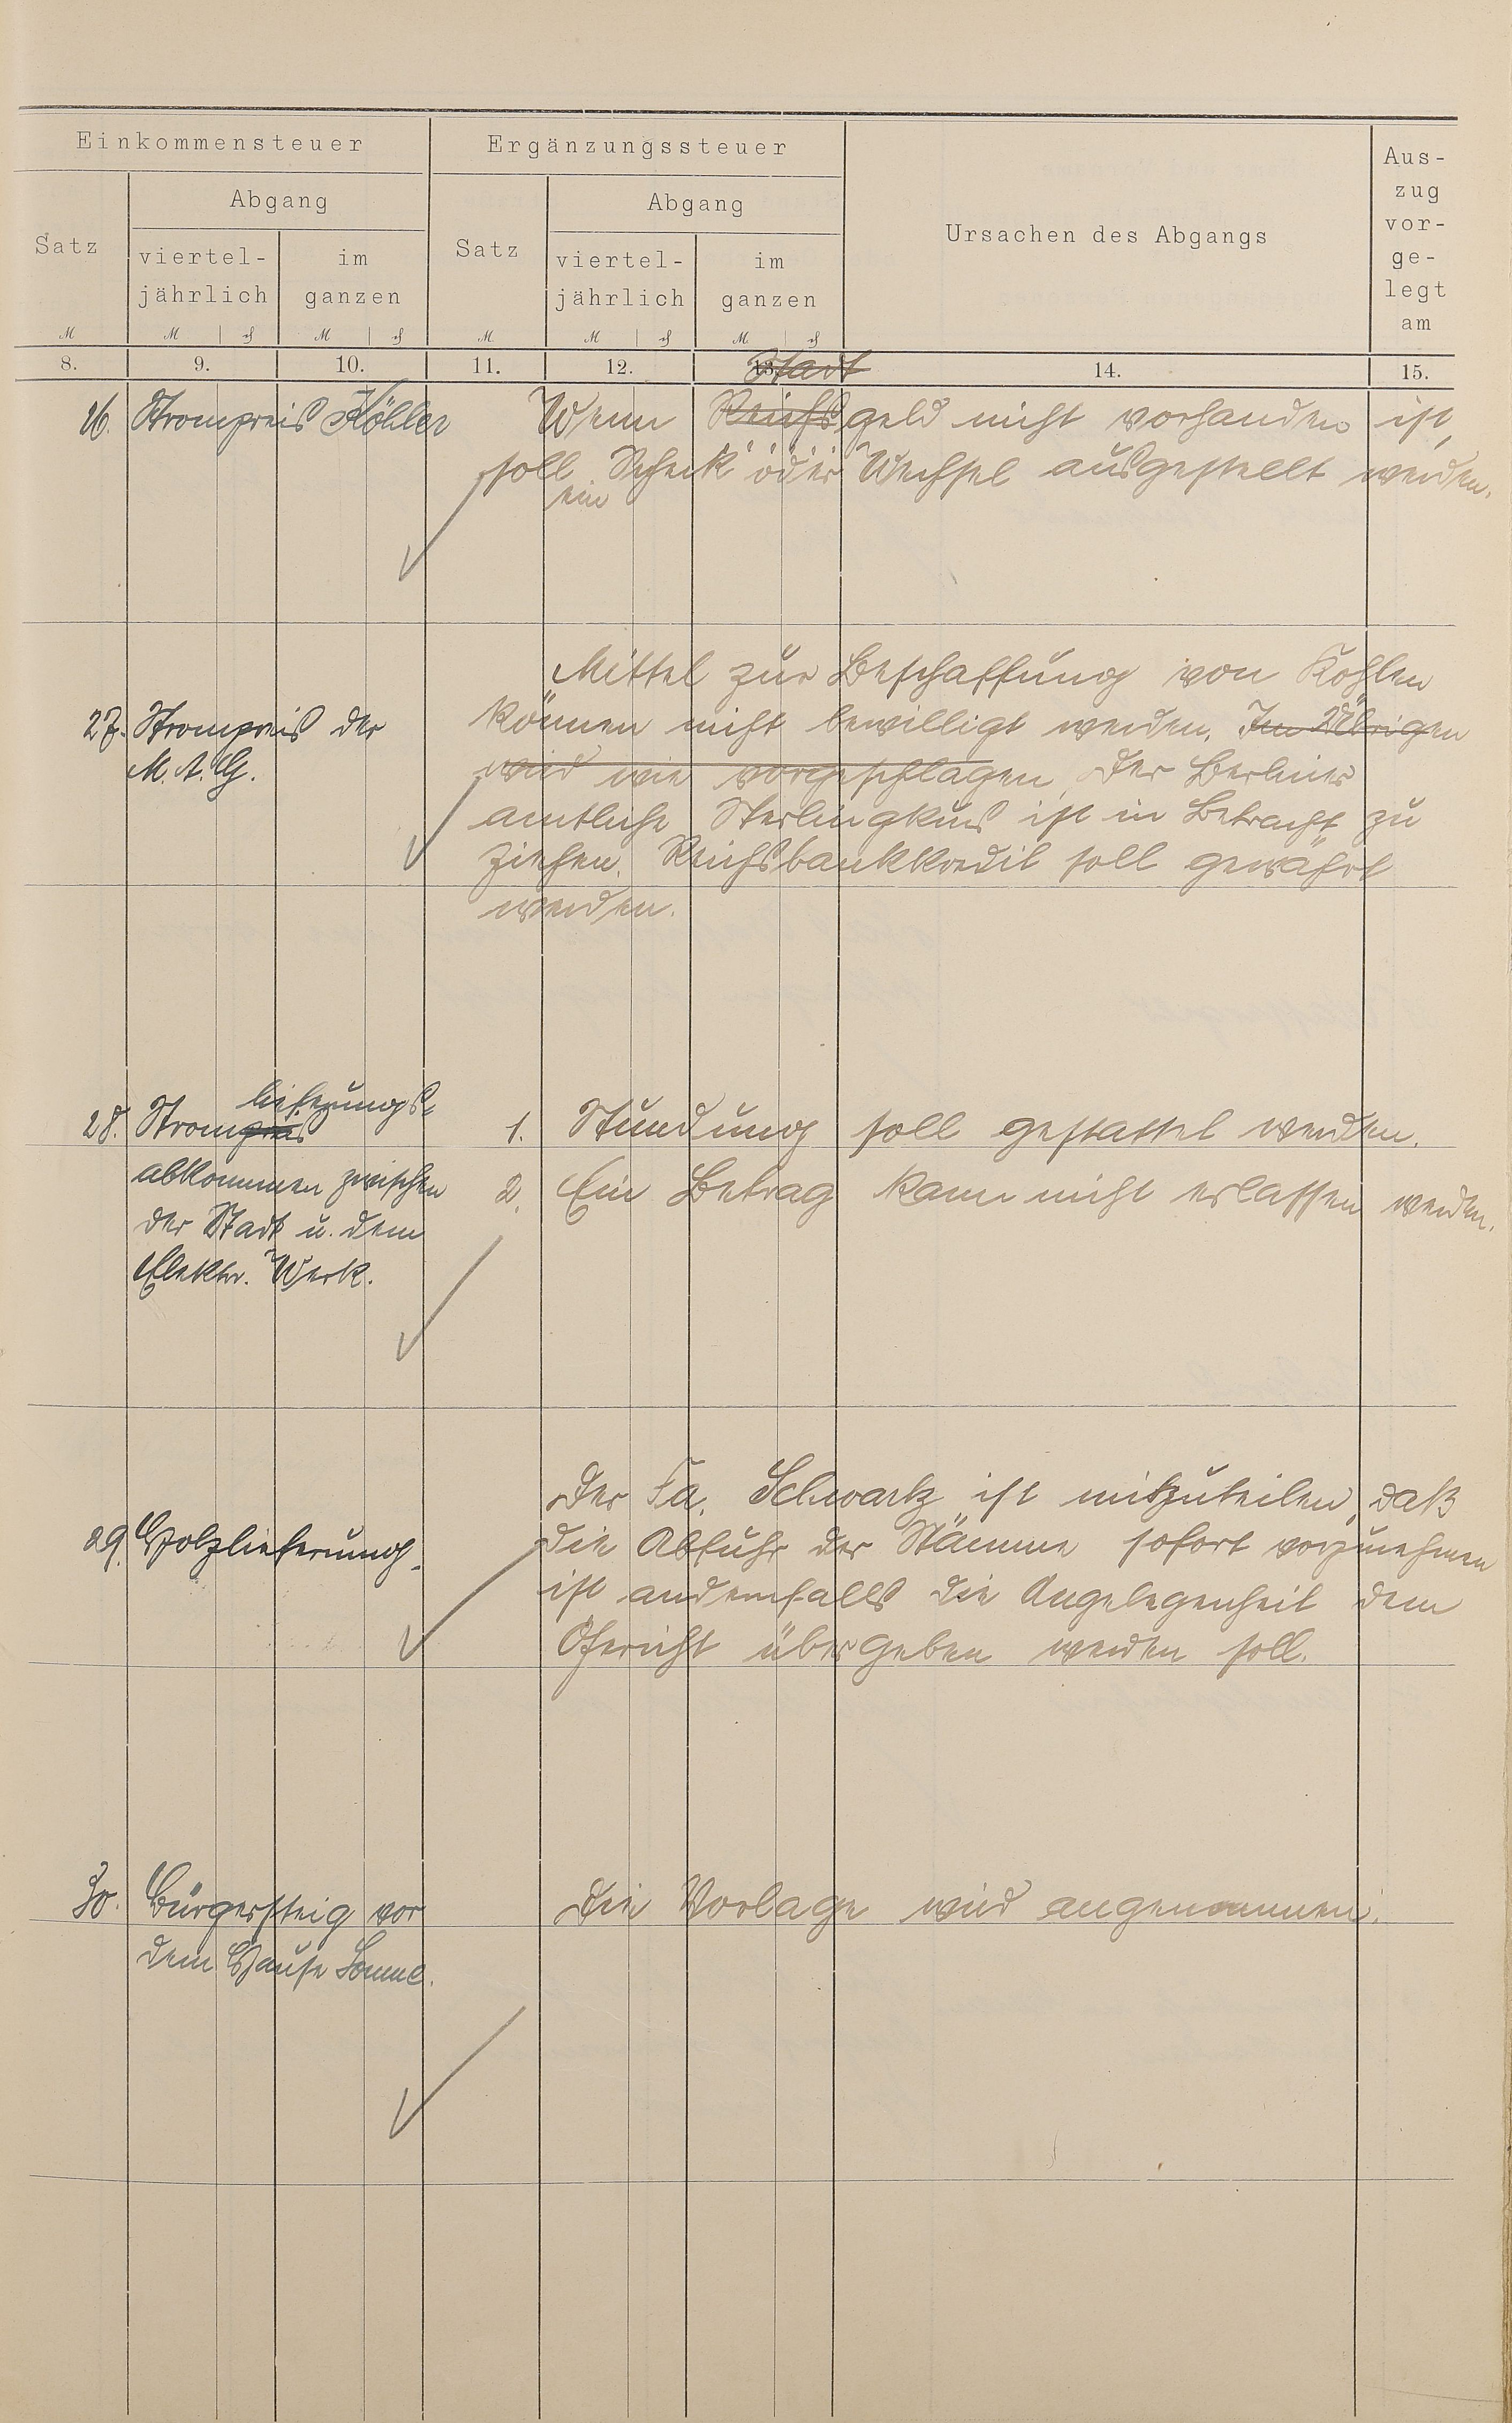 Einkommensteuer
Ergänzungssteuer
Ursachen des Abgangs
Aus-
zug
vor-
ge-
legt
am
Satz
Abgang
viertel-
jährlich
im
ganzen
Satz
Abgang
viertel-
jährlich
im
ganzen
M M ₰ M ₰ M M ₰ M ₰
8. 9. 10. 11. 12. 13. 14. 15.
Stadt
26. Strompreis Köhler
Wenn Reichsgeld nicht vorhanden ist,
soll Scheck oder Wechsel ausgestellt werden.
ein
27. Strompreis der
M.A.G.
Mittel zur Beschaffung von Kohlen
können nicht bewilligt werden. Im Übrigen
wird wie vorgeschlagen Der Berliner
amtliche Sterlingkurs ist in Betracht zu
ziehen. Reichsbankkredit soll gewährt
werden.
lieferungs-
28. Strompreis
abkommen zwischen
der Stadt u. dem
Elektr. Werk.
1. Stundung soll gestattet werden.
2. Ein Betrag kann nicht erlassen werden.
29. Holzlieferung.
Der Fa. Schwartz ist mitzuteilen, daß
die Abfuhr der Stämme sofort vorzunehmen
ist andernfalls die Angelegenheit dem
Gericht übergeben werden soll.
30. Bürgersteig vor
dem Hause Sonne.
Die Vorlage wird angenommen.